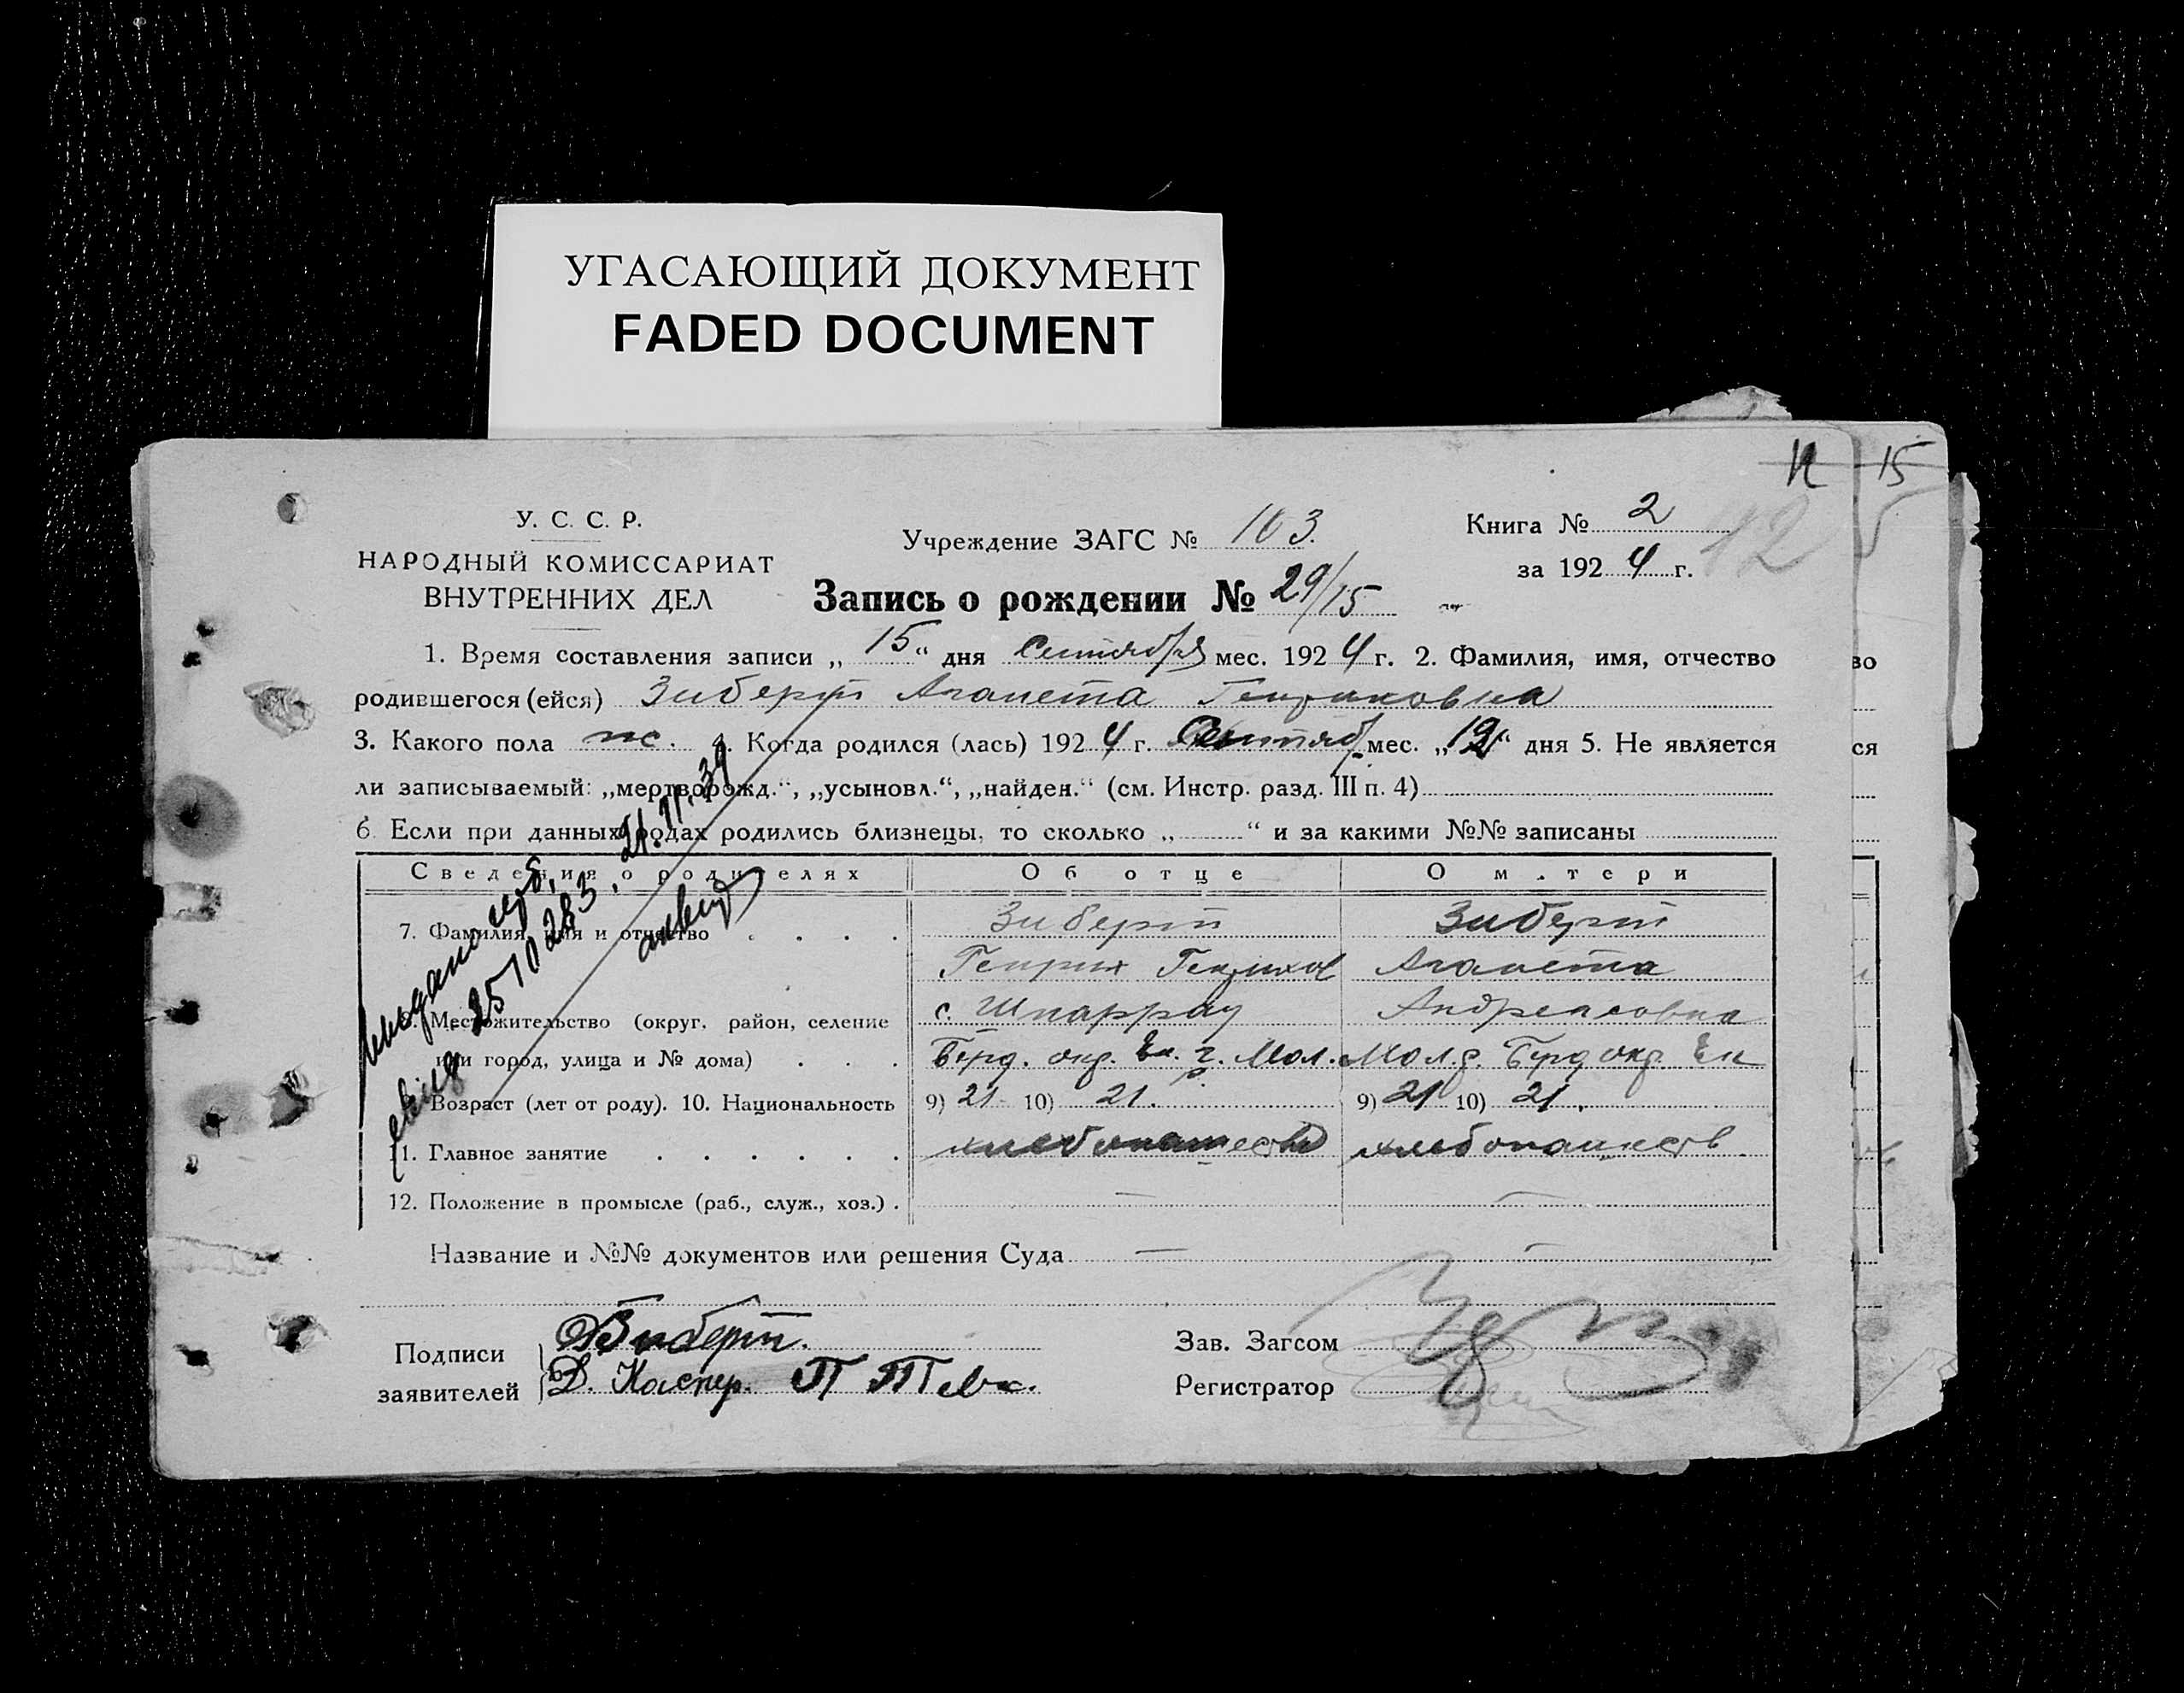 УГАСАЮЩИЙ ДОКУМЕНТ
FADED DOCUMENT
12 15
У. С. С. Р.
НАРОДНЫЙ КОМИССАРИАТ
ВНУТРЕННИХ ДЕЛ
Учреждение ЗАГС № 103.
Книга № 2
за 1924 г.
12
Запись о рождении № 29/15
1. Время составления записи „15“ дня Сентября мес. 1924 г. 2. Фамилия, имя, отчество
родившегося (ейся) Зиберт Аганета Генриховна
3. Какого пола ж. 4. Когда родился (лась) 1924 г. Сентяб мес. „12“ дня 5. Не является
ли записываемый: „мертворожд.“, „усыновл.“, „найден.“ (см. Инстр. разд. III п. 4)
6. Если при данных родах родились близнецы, то сколько „ “ и за какими №№ записаны
Сведения о родителях Об отце О матери
7. Фамилия, имя и отчество Зиберт Зиберт
Генрих Генрихов Аганета
с. Шпаррау Андреасовна
8. Местожительство (округ, район, селение
или город, улица и № дома) Берд. окр. Ек. г. Мол. Мол. р. Берд окр. Ек
9. Возраст (лет от роду). 10. Национальность 9) 21 10) 21. 9) 21 10) 21.
11. Главное занятие хлебопашество хлебопашеств
12. Положение в промысле (раб., служ., хоз.) . — —
Название и №№ документов или решения Суда — —
21.11.39
3510283.
Подписи
заявителей
Зиберт.
Д. Каспер.
Зав. Загсом
Регистратор